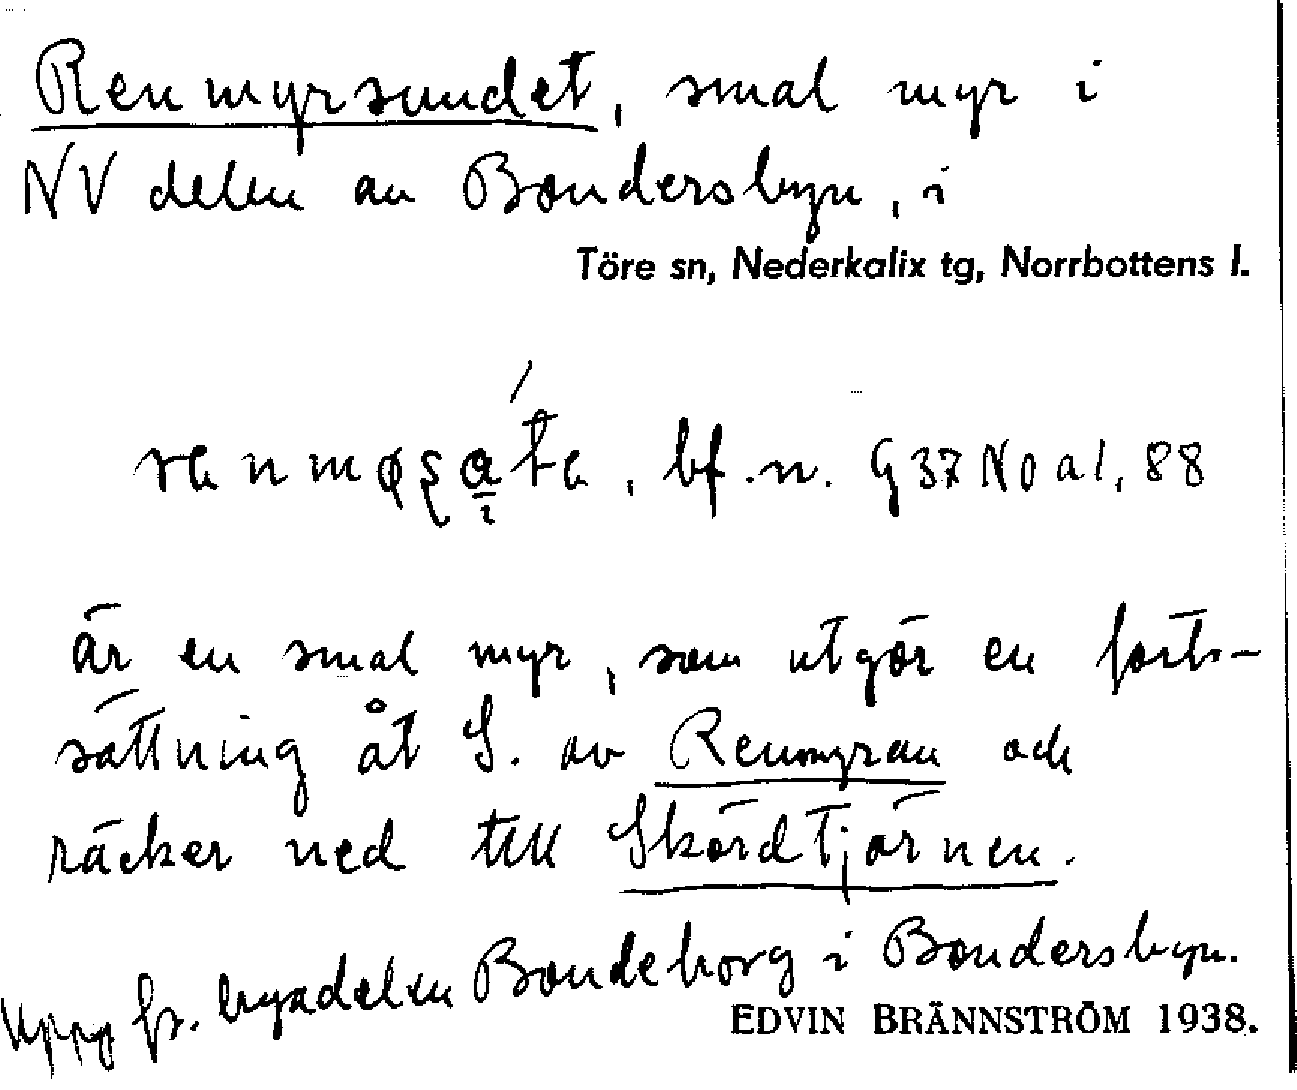 Renmyrsundet, smal myr i
NV delen av Bondersbyn, i
Töre sn, Nederkalix tg, Norrbottens l.
bf. n. G 37 No a 1, 88
är en smal myr, som utgör en fort-
sättning åt S. av Renmyran och
räcker ned till Skördtjärnen.
Uppg fr. byadelen Bondeborg i Bondersbyn.
EDVIN BRÄNNSTRÖM 1938.